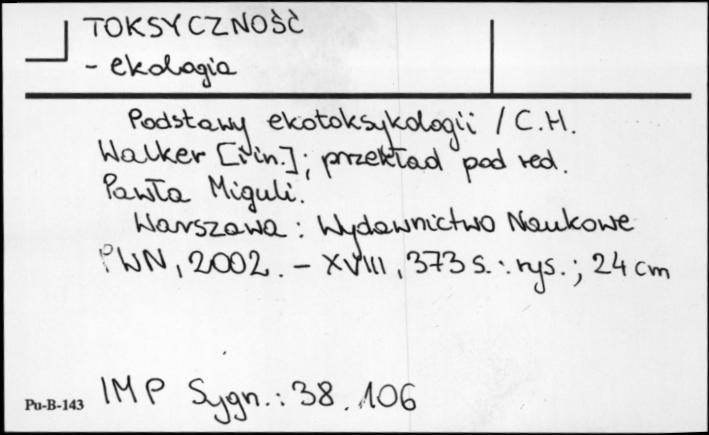 TOKSYCZNOŚĆ
- ekologia
Podstawy ekotoksykologii / C.H.
Walker [i in.]; przekład pod red.
Pawła Miguli.
Warszawa : Wydawnictwo Naukowe
PWN, 2002. - XVIII, 373 s. : rys. ; 24 cm
Pu-B-143 IMP Sygn.: 38.106